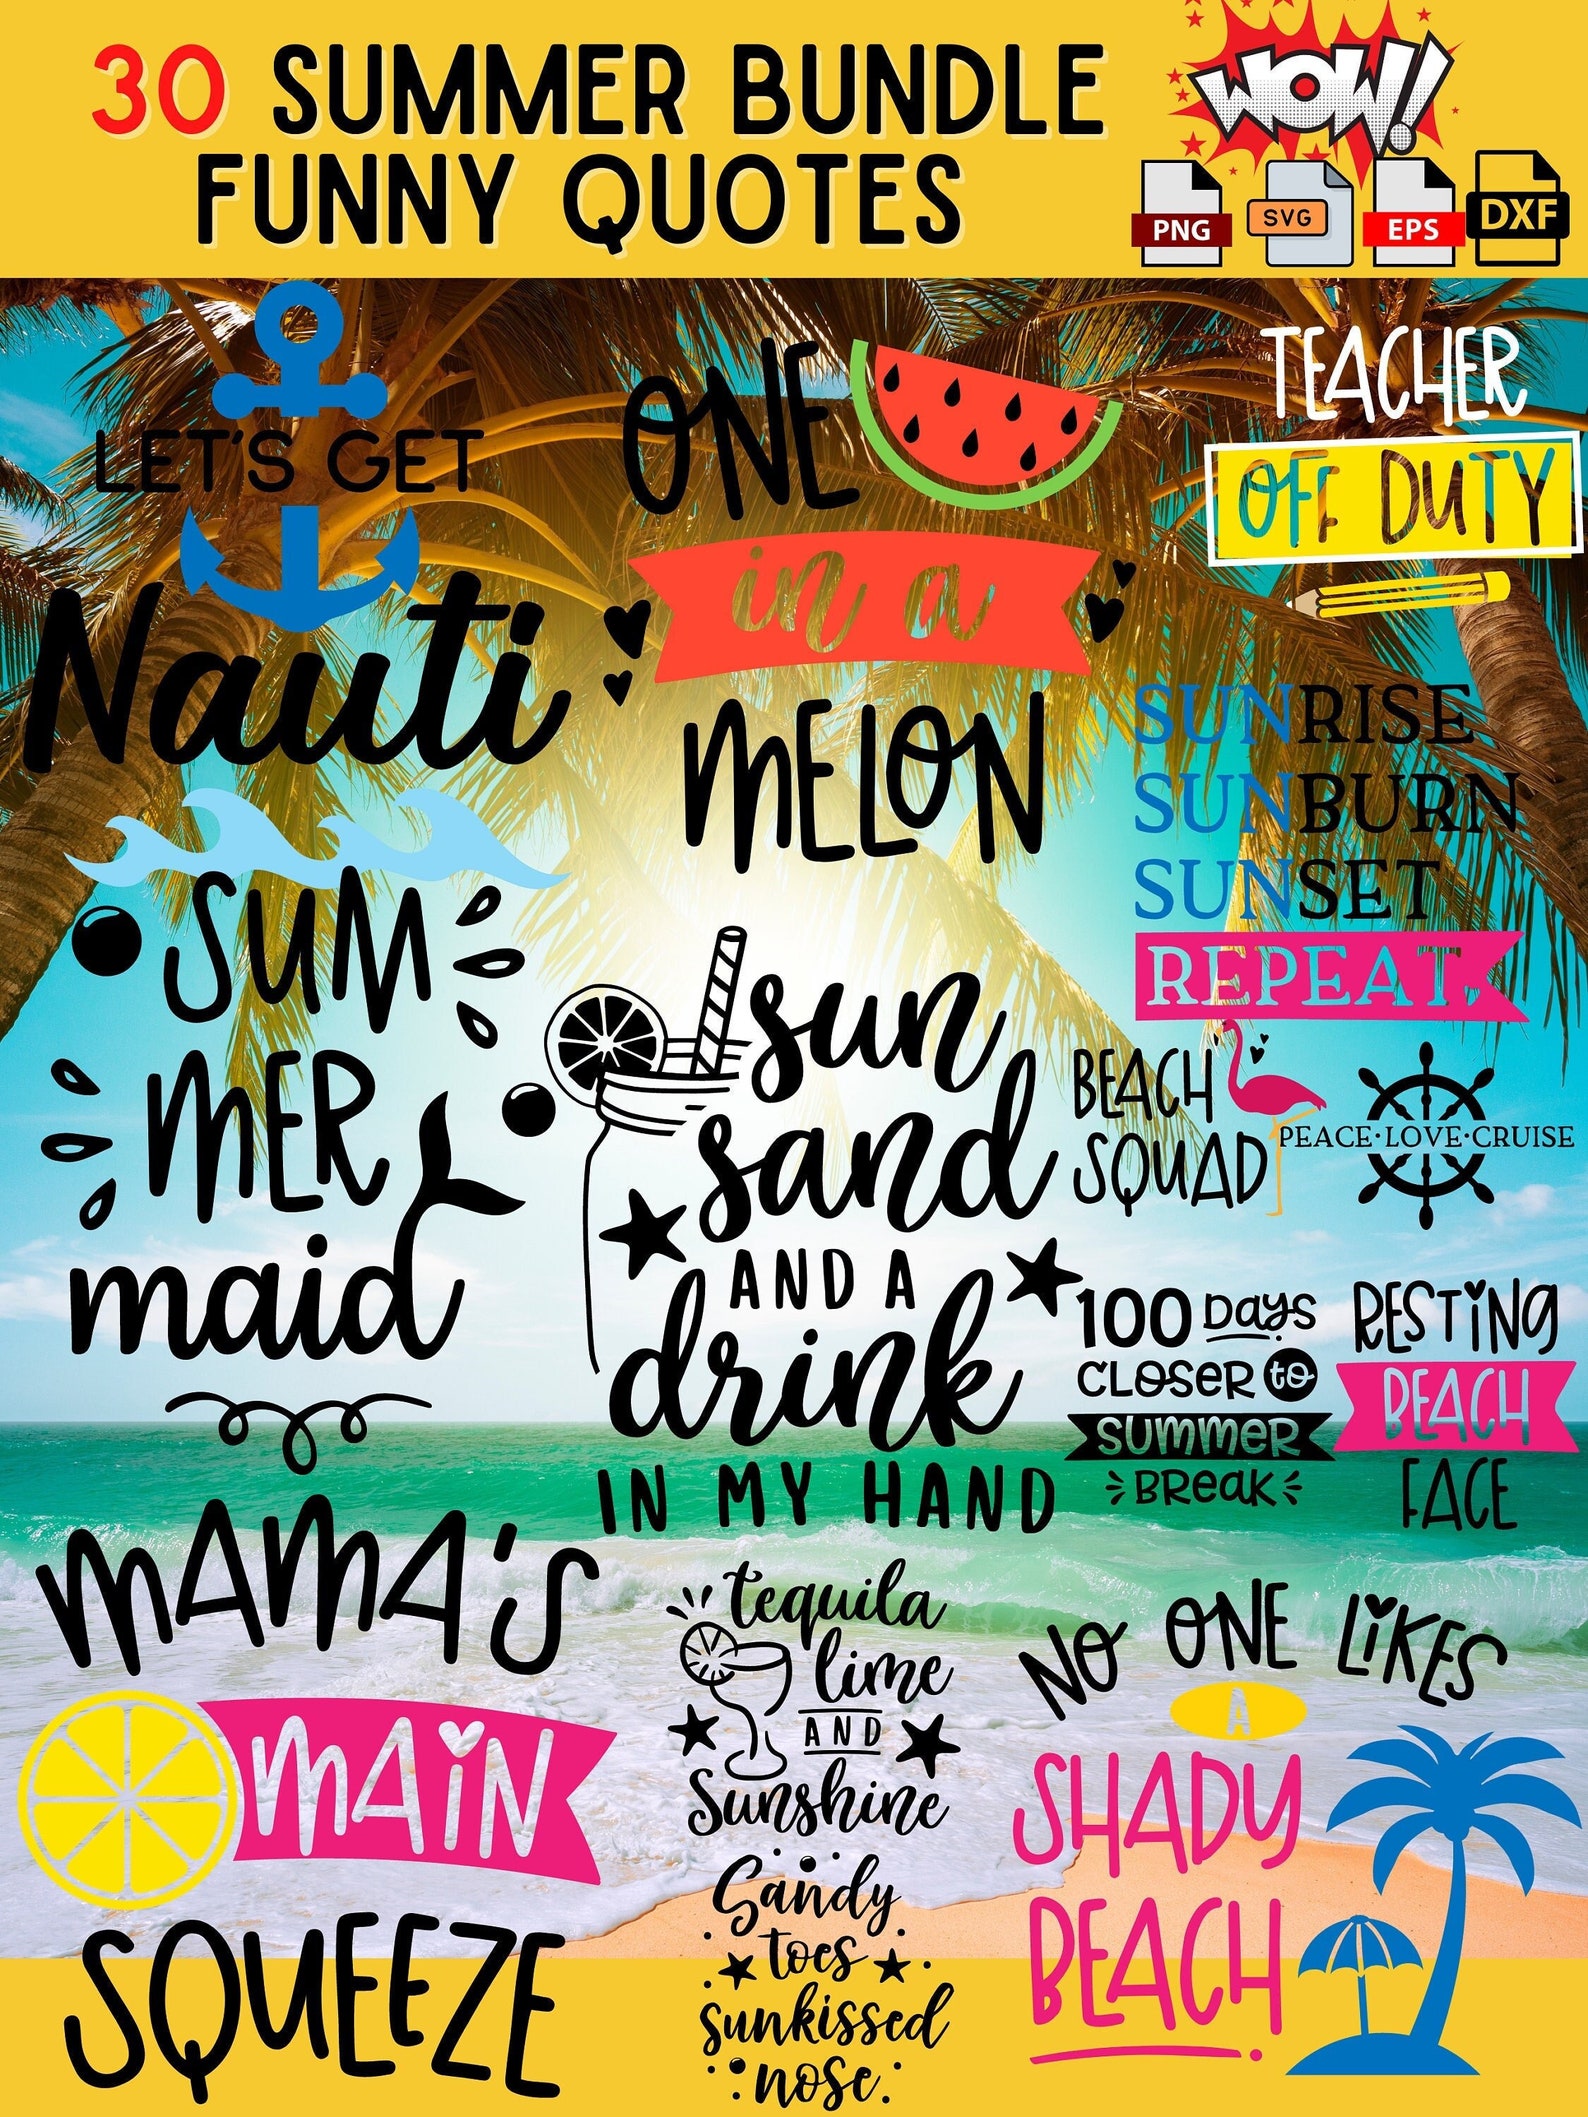 30 SUMMER BUNDLE
FUNNY QUOTES
WOW!
PNG
SVG
EPS
DXF
LET'S GET
Nauti
ONE
in a
MELON
TEACHER
OFF DUTY
SUNRISE
SUNBURN
SUNSET
REPEAT.
SUM
MER
maid
sun
sand
AND A
drink
IN MY HAND
BEACH
SQUAD
PEACE·LOVE·CRUISE
100 DAYS
CLOSER to
SUMMER
BREAK
RESTING
BEACH
FACE
MAMA'S
MAIN
SQUEEZE
tequila
lime
AND
Sunshine
Sandy
toes
sunkissed
nose.
NO ONE LIKES
A
SHADY
BEACH